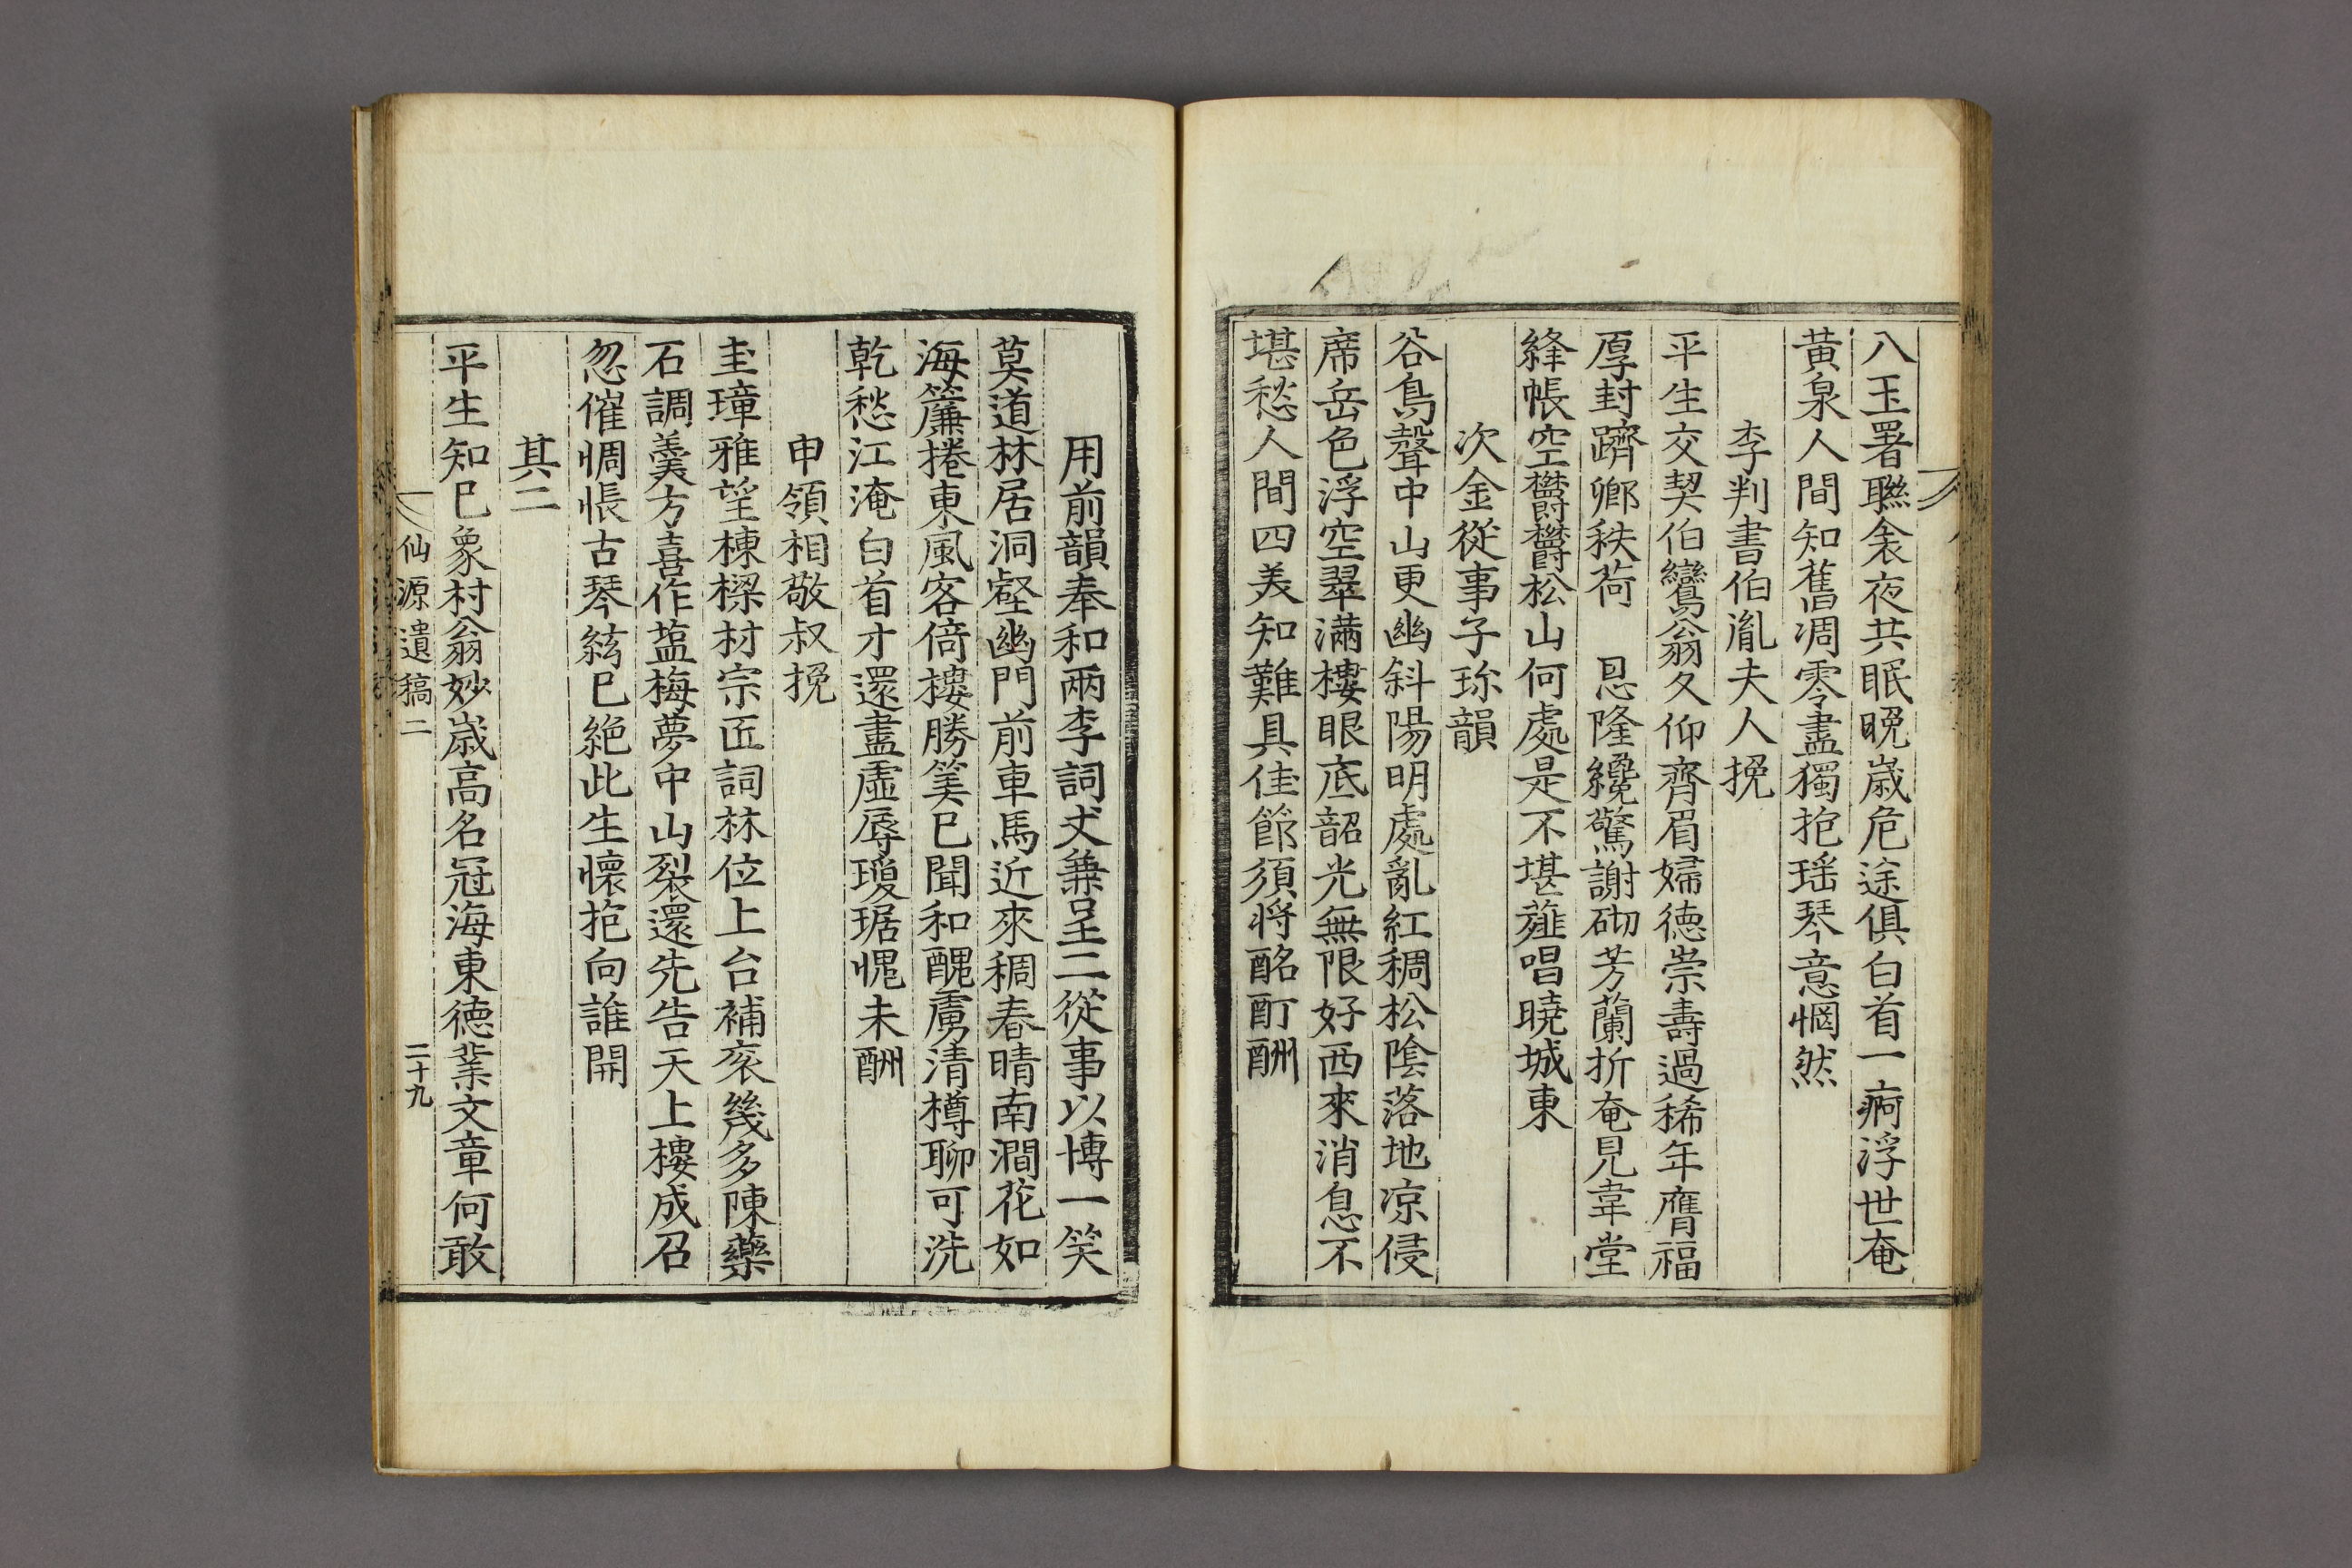 八玉署聮衾夜共眠晚歲危途俱白首一痾浮世奄
黃泉人間知舊凋零盡獨抱瑶琴意惘然
李判書伯胤夫人挽
平生交契伯鸞翁久仰齊眉婦德崇壽過稀年膺福
厚封躋鄉秩荷 恩隆纔驚謝砌芳蘭折奄見韋堂
絳帳空欝欝松山何處是不堪薤唱曉城東
次金從事子珎韻
谷鳥聲中山更幽斜陽明處亂紅稠松陰落地凉侵
席岳色浮空翠滿樓眼底韶光無限好西來消息不
堪愁人間四美知難具佳節須將酩酊酬
用前韻奉和兩李詞丈兼呈二從事以博一笑
莫道林居洞壑幽門前車馬近來稠春晴南澗花如
海簾捲東風客倚樓勝筭已聞和醜虜清樽聊可洗
乾愁江淹白首才還盡虛辱瓊琚愧未酬
申領相敬叔挽
圭璋雅望棟樑材宗匠詞林位上台補衮幾多陳藥
石調羹方喜作塩梅夢中山裂還先告天上樓成召
忽催惆悵古琴絃已絕此生懷抱向誰開
其二
平生知己象村翁妙歲高名冠海東德業文章何敢
仙源遺稿二
二十九